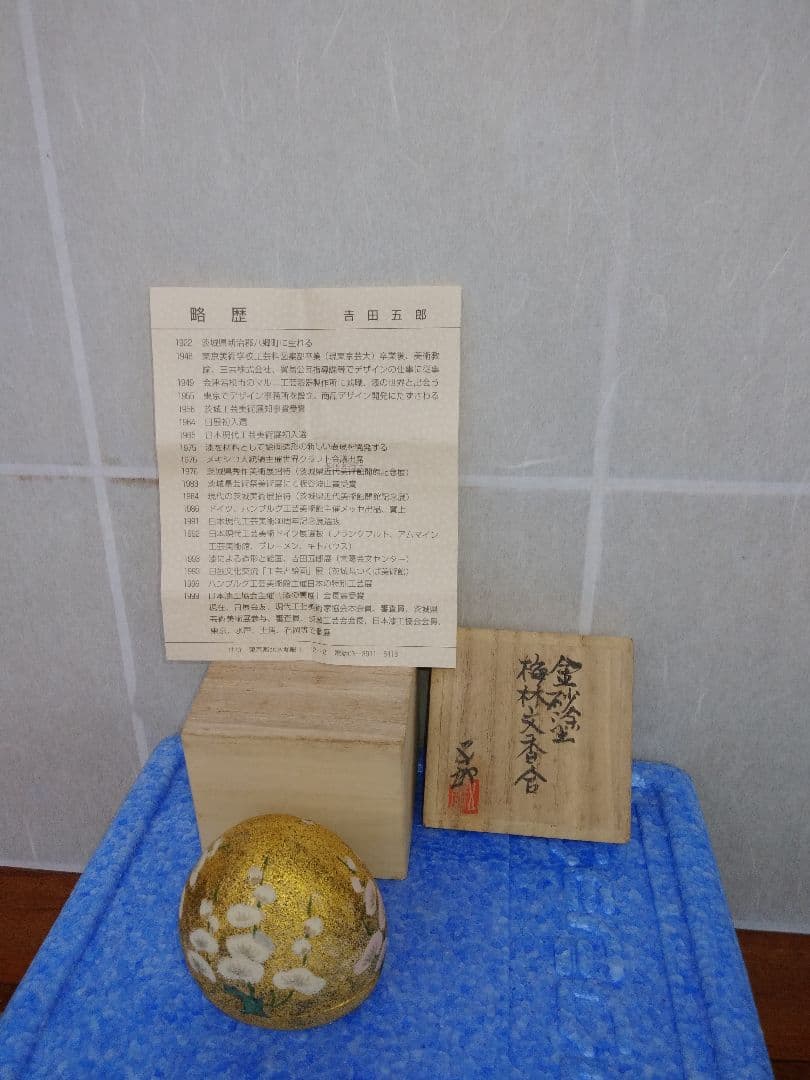 略歴 吉田五郎
1922 茨城県新治郡八郷町に生れる
東京美術学校工芸科図案部卒業(現東京芸大)卒業後、美術教
1949 会津若松市のマルニ工芸 製作所に就職、漆の世界と出会う
東京でデザイン事務所を設立、商品デザイン開発にたずさわる
茨城工芸美術展知事賞受賞
1964 日展初入選
日本現代工芸美術展初入選
1975 漆を材料として絵画造形の新しい表現を開発する
1976 メキシコ大統領主催世界クラフト会議出席
1976 茨城県秀作美術展招待(茨城県近代美術館開館記念展)
1983 茨城県芸術祭美術展にて板谷波山賞受賞
1984 現代の茨城美術展招待(茨城県近代美術館開館記念展)
1986 ドイツ、ハンブルグ工芸美術館主催メッセ出品、買上
1991 日本現代工芸美術30周年記念展選抜
1992 日本現代工芸美術ドイツ展選抜(フランクフルト、アムマイン
工芸美術館、ブレーメン、キトハウス)
1993 漆による造形と絵画、吉田五郎展(常陽芸文センター)
1993 日独文化交流「工芸と絵画」展(茨城県つくば美術館)
ハンブルグ工芸美術館主催日本の特別工芸展
日本漆工協会主催 漆の美展 会長賞受賞
現在、日展会友、現代工芸美術家協会本会員、審査員、茨城県
芸術美術展参与、審査員、茨城工芸会会長、日本漆工協会会員、
東京、水戸、土浦、石岡等で個展
金砂塗
梅林文香合
五郎